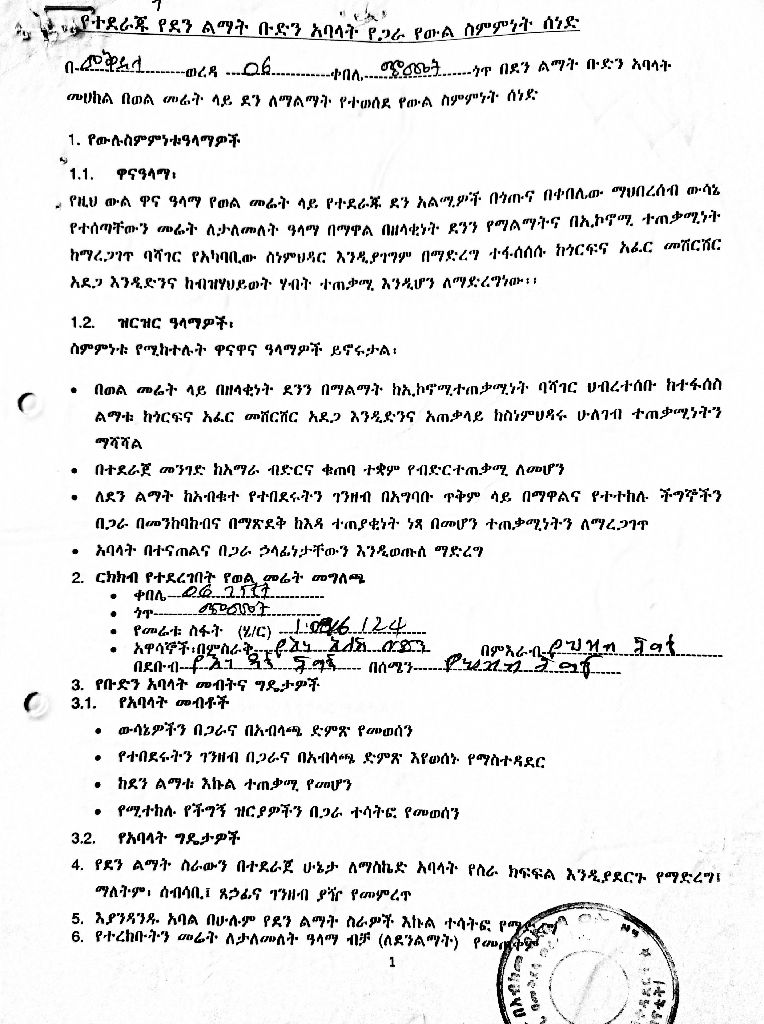 የተደራጁ የደን ልማት ቡድን አባላት የጋራ የውል ስምምነት ሰነድ
በ-መቅደላ ወረዳ 06 ቀበሌ ጎጥ በደን ልማት ቡድን አባላት
መሀከል በወል መሬት ላይ ደን ለማልማት የተወሰደ የውል ስምምነት ሰነድ
1. የውሉስምምነቱዓላማዎች
1.1. ዋናዓላማ፡
የዚህ ውል ዋና ዓላማ የወል መሬት ላይ የተደራጁ ደን አልሚዎች በጎጡና በቀበሌው ማህበረሰብ ውሳኔ
የተሰጣቸውን መሬት ለታለመለት ዓላማ በማዋል በዘላቂነት ደንን የማልማትና በኢኮኖሚ ተጠቃሚነት
ከማረጋገጥ ባሻገር የአካባቢው ስነምህዳር እንዲያገግም በማድረግ ተፋሰሰሱ ከጎርፍና አፈር መሸርሸር
አደጋ እንዲድንና ከብዝሃህይወት ሃብት ተጠቃሚ እንዲሆን ለማድረግነው፡፡
1.2. ዝርዝር ዓላማዎች፡
ስምምነቱ የሚከተሉት ዋናዋና ዓላማዎች ይኖሩታል፡
• በወል መሬት ላይ በዘላቂነት ደንን በማልማት ከኢኮኖሚተጠቃሚነት ባሻገር ህብረተሰቡ ከተፋሰስ
ልማቱ ከጎርፍና አፈር መሸርሸር አደጋ እንዲድንና አጠቃላይ ከስነምህዳሩ ሁለገብ ተጠቃሚነትን
ማሻሻል
• በተደራጀ መንገድ ከአማራ ብድርና ቁጠባ ተቋም የብድርተጠቃሚ ለመሆን
• ለደን ልማት ከአብቁተ የተበደሩትን ገንዘብ በአግባቡ ጥቅም ላይ በማዋልና የተተከሉ ችግኞችን
በጋራ በመንከባከብና በማጽደቅ ከእዳ ተጠያቂነት ነጻ በመሆን ተጠቃሚነትን ለማረጋገጥ
• አባላት በተናጠልና በጋራ ኃላፊነታቸውን እንዲወጡለ ማድረግ
2. ርክክብ የተደረገበት የወል መሬት መግለጫ
• ቀበሌ 06
• ጎጥ
• የመሬቱ ስፋት (ሄ/ር) 124
• አዋሳኞች፡በምስራቅ በምእራብ
በደቡብ በሰሜን
3. የቡድን አባላት መብትና ግዴታዎች
3.1. የአባላት መብቶች
• ውሳኔዎችን በጋራና በአብላጫ ድምጽ የመወሰን
• የተበደሩትን ገንዘብ በጋራና በአብላጫ ድምጽ እየወሰኑ የማስተዳደር
• ከደን ልማቱ እኩል ተጠቃሚ የመሆን
• የሚተከሉ የችግኝ ዝርያዎችን በጋራ ተሳትፎ የመወሰን
3.2. የአባላት ግዴታዎች
4. የደን ልማት ስራውን በተደራጀ ሁኔታ ለማስኬድ አባላት የስራ ክፍፍል እንዲያደርጉ የማድረግ፤
ማለትም፡ ሰብሳቢ፤ ጸኃፊና ገንዘብ ያዥ የመምረጥ
5. እያንዳንዱ አባል በሁሉም የደን ልማት ስራዎች እኩል ተሳትፎ
6. የተረከቡትን መሬት ለታለመለት ዓላማ ብቻ (ለደንልማት) የመጠቀም
1